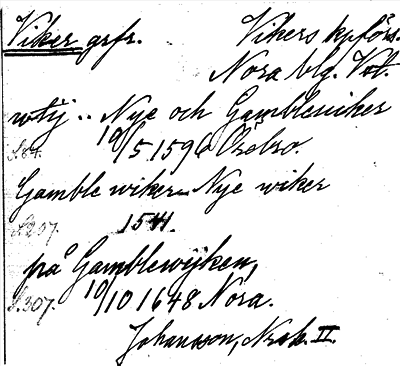 Viker grfr. Vikers kpförs.
Nora blg. Vst.
wtij .. Nye och Gambleuiker
S. 84. 10/5 1596 Örebro.
Gamble wiker Nye wiker
S. 207. 1541.
på Gamblewijken,
S. 307. 10/10 1648 Nora.
Johansson, Nrsk. II.